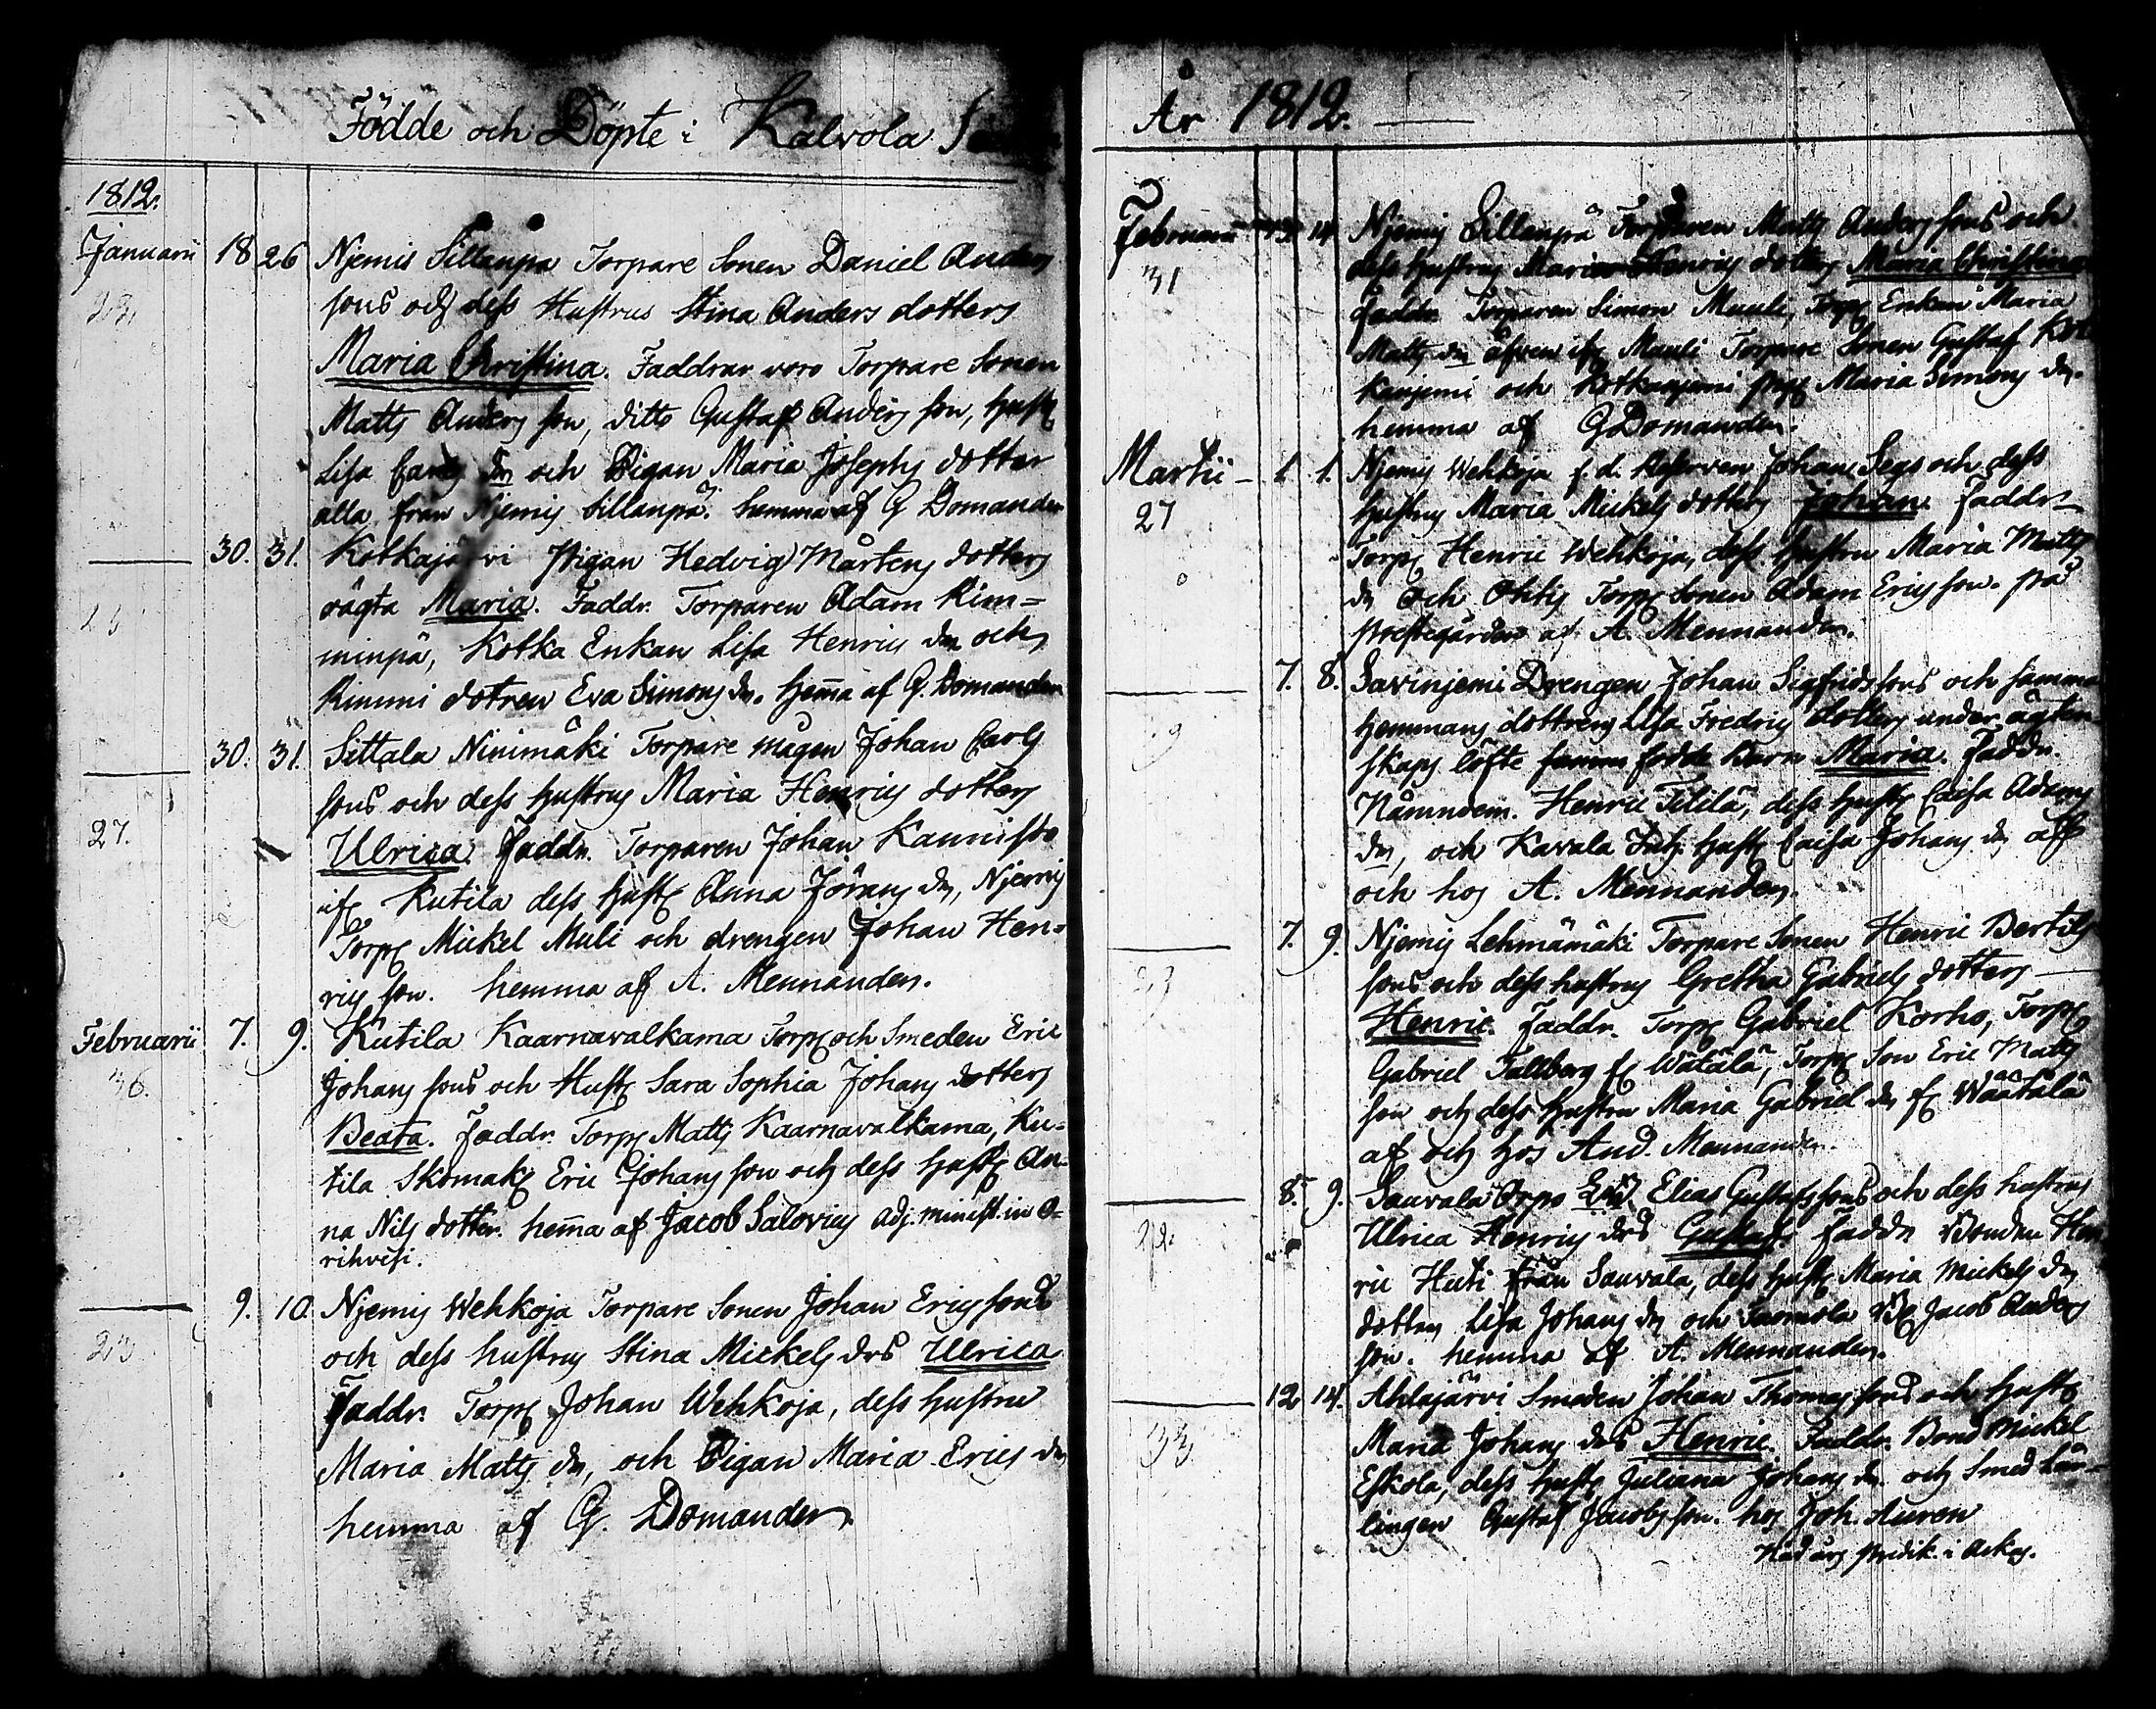 Födde och Döpte i Kalvola
1812.
Januarii 18 26 Njemis Sillanpä Torpare Sonen Daniel Anders
sons och dess Hustrus Stina Anders dotters
Maria Christina. Faddrar voro Torpare Sonen
Matts Anders son, ditto Gustaf Anders son, Hustr
Lisa Carls dr och Pigan Maria Josephs dotter
alla från Njemis Sillanpä. hemma af G Domander
30. 31. Kotkajärvi Pigan Hedvig Mårtens dotters
oägta Maria. Faddr. Torparen Adam Rim=
minpä, Kotka Enkan Lisa Henrics dr och
Rimmi dotren Eva Simons dr. hema af G. Domander
30. 31. Sittala Ninimäki Torpare mågen Johan Carls
sons och dess hustrus Maria Henrics dotters
27. Ulrica. Faddr. Torparen Johan Kaunisto
ifr Kutila dess hustr Anna Jörans dr, Njemis
Torp Mickel Muli och drengen Johan Hen=
rics son. hemma af A. Mennander.
Februarii 7. 9. Kutila Kaarnavalkama Torp och Smeden Eric
36. Johans sons och Hustr Sara Sophia Johans dotters
Beata. Faddr. Torp Matts Kaarnavalkama, Ku=
tila Skomak Eric Johans son och dess hustr An=
na Nils dotter. hema af Jacob Salovius adj. minist. in O=
rihvesi.
9. 10. Njemis Wehkoja Torpare Sonen Johan Erics sons
och dess hustrus Stina Mickels drs Ulrica
Faddr. Torp Johan Wehkoja, dess hustru
Maria Matts dr, och Pigan Maria Erics dr
hemma af G. Domander.
År 1812.
Februarii 13 14 Njemis Sillanpä Torparen Matts Anders sons och
31 dess hustrus Maria Henrics dotters Maria Christina
Faddr. Torparen Simon Muuli, Torp Enkan Maria
Matts dr äfven ifr Mauli Torpare Sonen Gustaf Kot
kanjemi och Kotkanjemi pig Maria Simons dr.
hemma af G Domander.
Martii 1. 1. Njemis Wehkoja f. d. Reserven Johan Segs och dess
27 hustrus Maria Mickels dotters Johan. Faddr
Torp Henric Wehkoja, dess hustru Maria Matts
dr och Ohtis Torp Sonen Adam Erics son. på
prestegården af A. Mennander.
7. 8. Savinjemi Drengen Johan Sigfrids sons och samma
hemmans dottrens Lisa Fredrics dotters under ägten
skaps löfte födde barn Maria. Faddr.
Nämndem. Henric Tililä, dess hustr Caisa Adams
dr, och Kavala hustr Caisa Johans dr af
och hos A. Mennander.
7. 9. Njemis Lehmämäki Torpare Sonen Henric Bertils
sons och dess hustrus Gretha Gabriels dotters
Henric. Faddr. Torp Gabriel Korho, Torp
Gabriel Tallberg fr Wätälä, Torp Son Eric Matts
son och dess hustru Maria Gabriel dr fr Wäätälä
af och hos And. Mennander.
8. 9. Sauvala Orpo Elias Gustafs sons och dess hustrus
22 Ulrica Henrics drs Gustaf. Faddr Bonden Hen
ric Huti från Sauvala, dess hustr Maria Mickels dr
dottren Lisa Johans dr och Taomola Jacob Anders
son. hemma af A. Mennander.
12 14. Ahlajärvi Smeden Johan Thomas sons och hustr
33 Maria Johans drs Henric. Faddr. Bond Mickel
Eskola, dess hustr Juliana Johans dr. och Smed Lär-
lingen Gustaf Jacobs son. hos Joh. Auren
Nådårs predik. i Ackas.